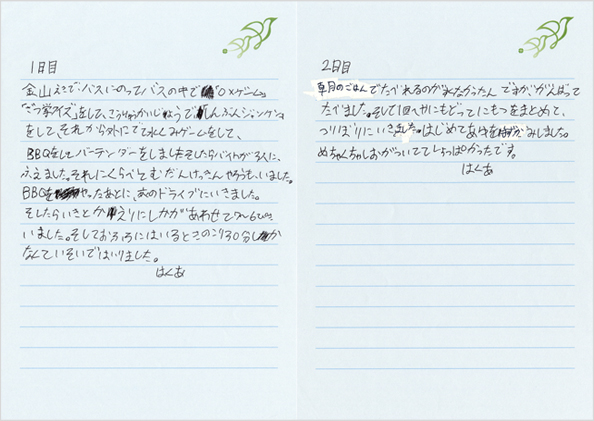 1日目
金山えきでバスにのってバスの中で「○×ゲーム」
「ざつ学クイズ」をして、こうりゅうかいじょうで「しんぶんジャンケン」
をして、それから外にでて水くみゲームをして、
BBQをしてバーテンダーをしましたそしたらバイトが3人に、
ふえました。それにくらべて むだんけっきん やろうも、いました。
BBQをやったあとに、あのドライブにいきました。
そしたらいきとかえりにしかがあわせて
いました。そしておふろにはいるときのこり30分しか
なくていそいではいりました。
はくあ
2日目
朝のごはんでたべれるのがみなかったんですががんばって
たべました。そして1回へやにもどってにもつをまとめて、
つりぼりにいきました。はじめてあゆをみました。
めちゃくちゃしおがついててしょっぱかったです。
はくあ